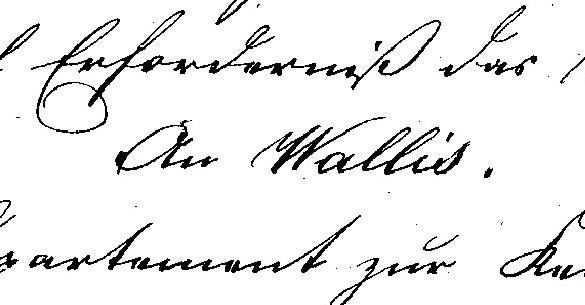 Erforderniß das
An Wallis.
partement zur